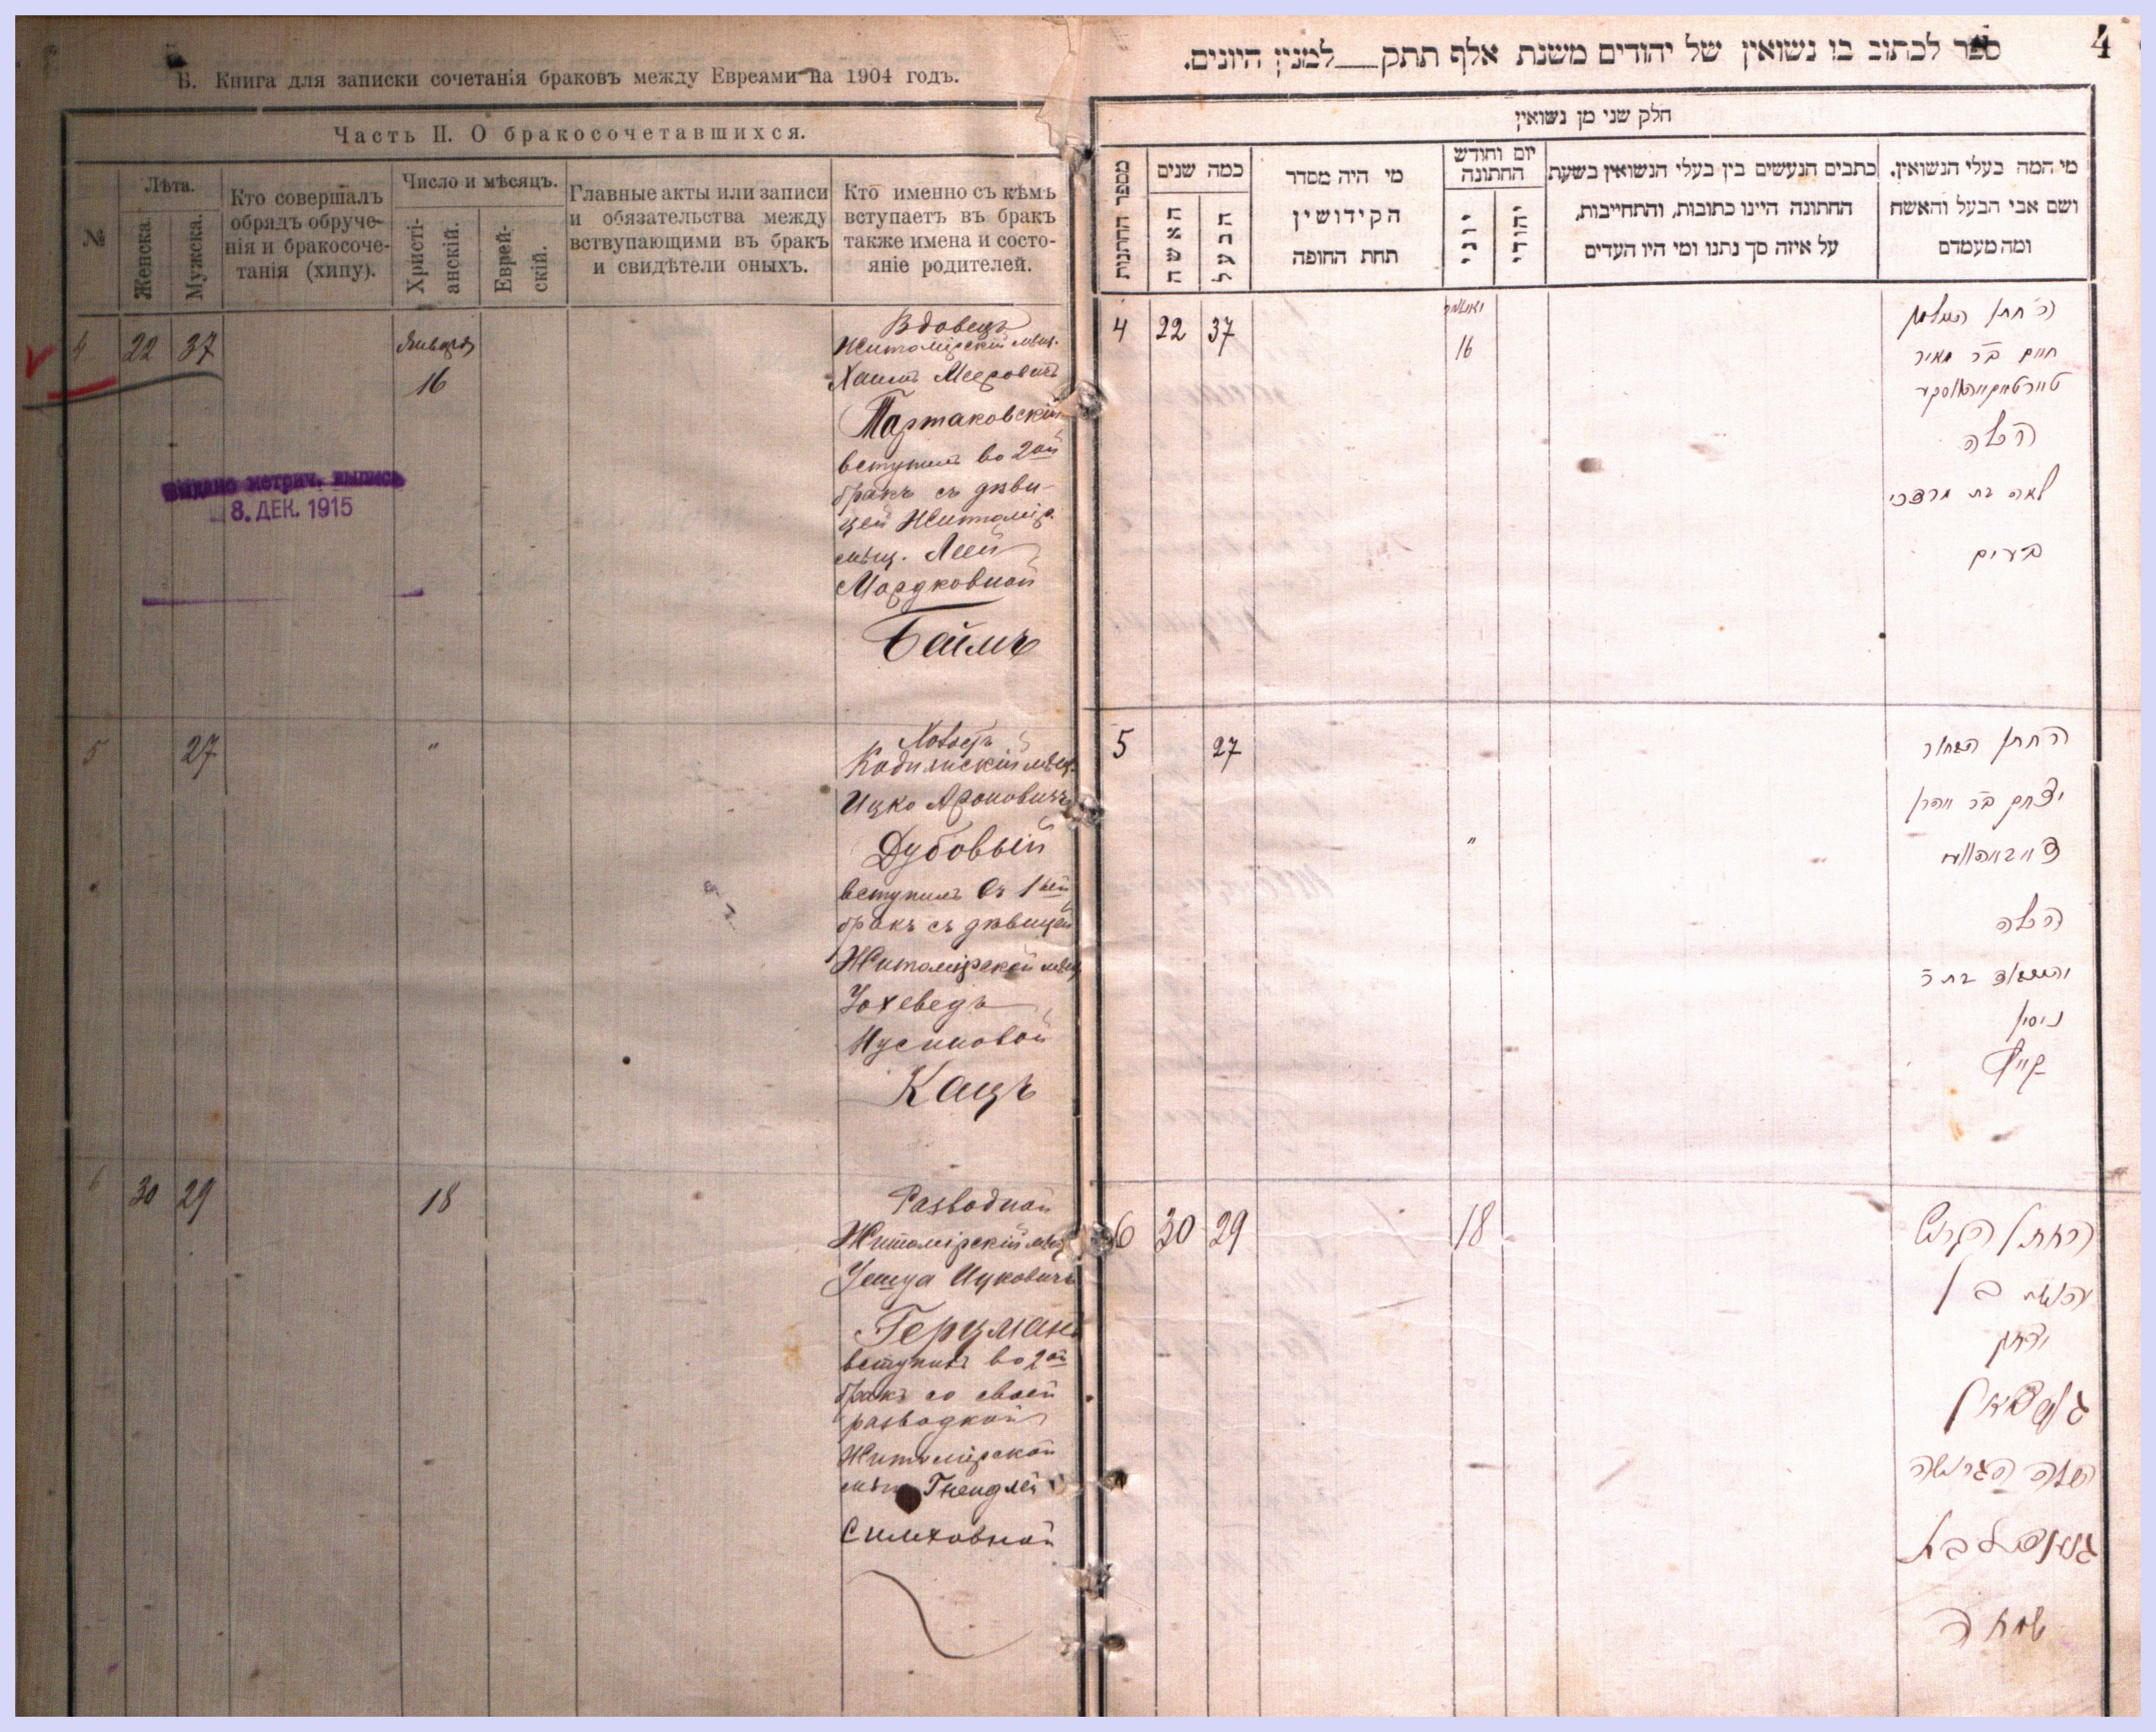 Б. Книга для записки сочетанія браковъ между Евреями на 1904 годъ.
Часть II. О бракосочетавшихся.
№
Лѣта.
Женска.
Мужска.
Кто совершалъ
обрядъ обруче-
нія и бракосоче-
танія (хипу).
Число и мѣсяцъ.
Христі-
анскій.
Еврей-
скій.
Главные акты или записи
и обязательства между
вствупающими въ бракъ
и свидѣтели оныхъ.
Кто именно съ кѣмъ
вступаетъ въ бракъ
также имена и состо-
яніе родителей.
4 22 37
Января
16
Вдовецъ
Житомірскій мѣщ.
Хаимъ Мееровичъ
Тартаковскій
вступилъ во 2ой
бракъ съ дѣви-
цей Житомір.
мѣщ. Леей
Мордковной
Беймъ
Выдано метрич. выпись
8. ДЕК. 1915
5 27 "
мѣщ.
Ицко Ароновичъ
Дубовый
вступилъ въ 1ый
бракъ съ дѣвицей
Житомірской мѣщ
Іохеведъ
Нусиновой
Кацъ
6 30 29 18
Разводной
Житомірскій мѣщ
Іешуа Ицковичъ
Герцманъ
вступилъ во 2ой
бракъ со своей
разводкой
Житомірской
мѣщ Гнендлей
Симховной
4
ספר לכתוב בו נשואין של יהודים משנת אלף תתק__למנין היונים.
חלק שני מן נשואין
מספר החתונות
כמה שנים
האשה
הבעל
מי היה מסדר
הקידושין
תחת החופה
יום וחודש
החתונה
יוני
יהודי
כתבים הנעשים בין בעלי הנשואין בשעת
החתונה היינו כתובות, והתחייבות,
על איזה סך נתנו ומי היו העדים
מי המה בעלי הנשואין.
ושם אבי הבעל והאשה
ומה מעמדם
4 22 37
יאנואר
16
ה׳ חתן האלמן
חיים ב״ר מאיר
הכלה
לאה בת מרדכי
5 27 "
החתן הבחור
יצחק ב״ר אהרן
הכלה
ניסן
6 30 29 18
החתן הגרוש
יהושע בן
יצחק
הכלה הגרושה
שמחה